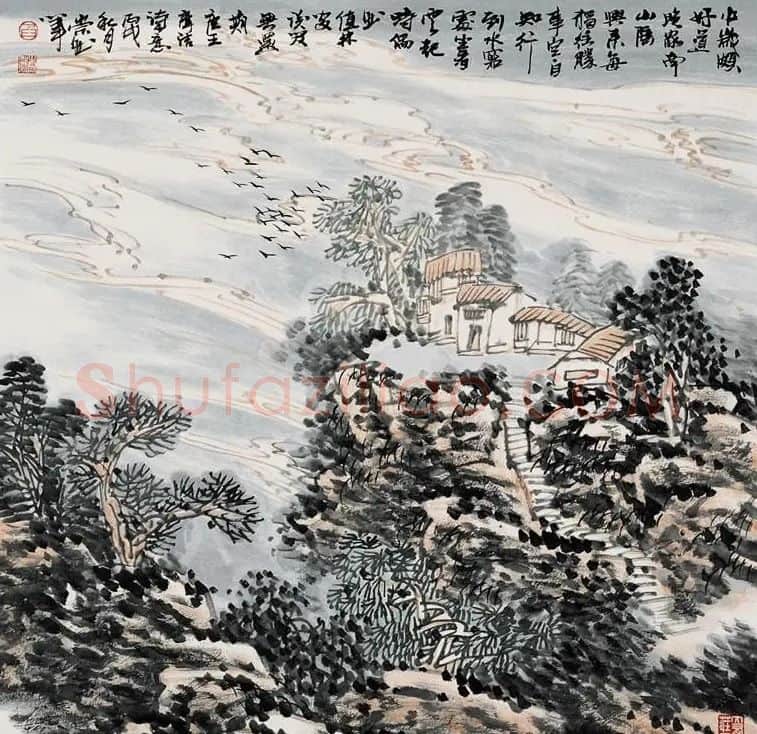 中歲頗
好道
晚家南
山陲
興來每
獨往勝
事空自
知行
到水窮
處坐看
雲起
時偶
然
值林
叟
談笑
無還
期
唐王
摩詰
詩意
秋月
Shufaziliao.COM